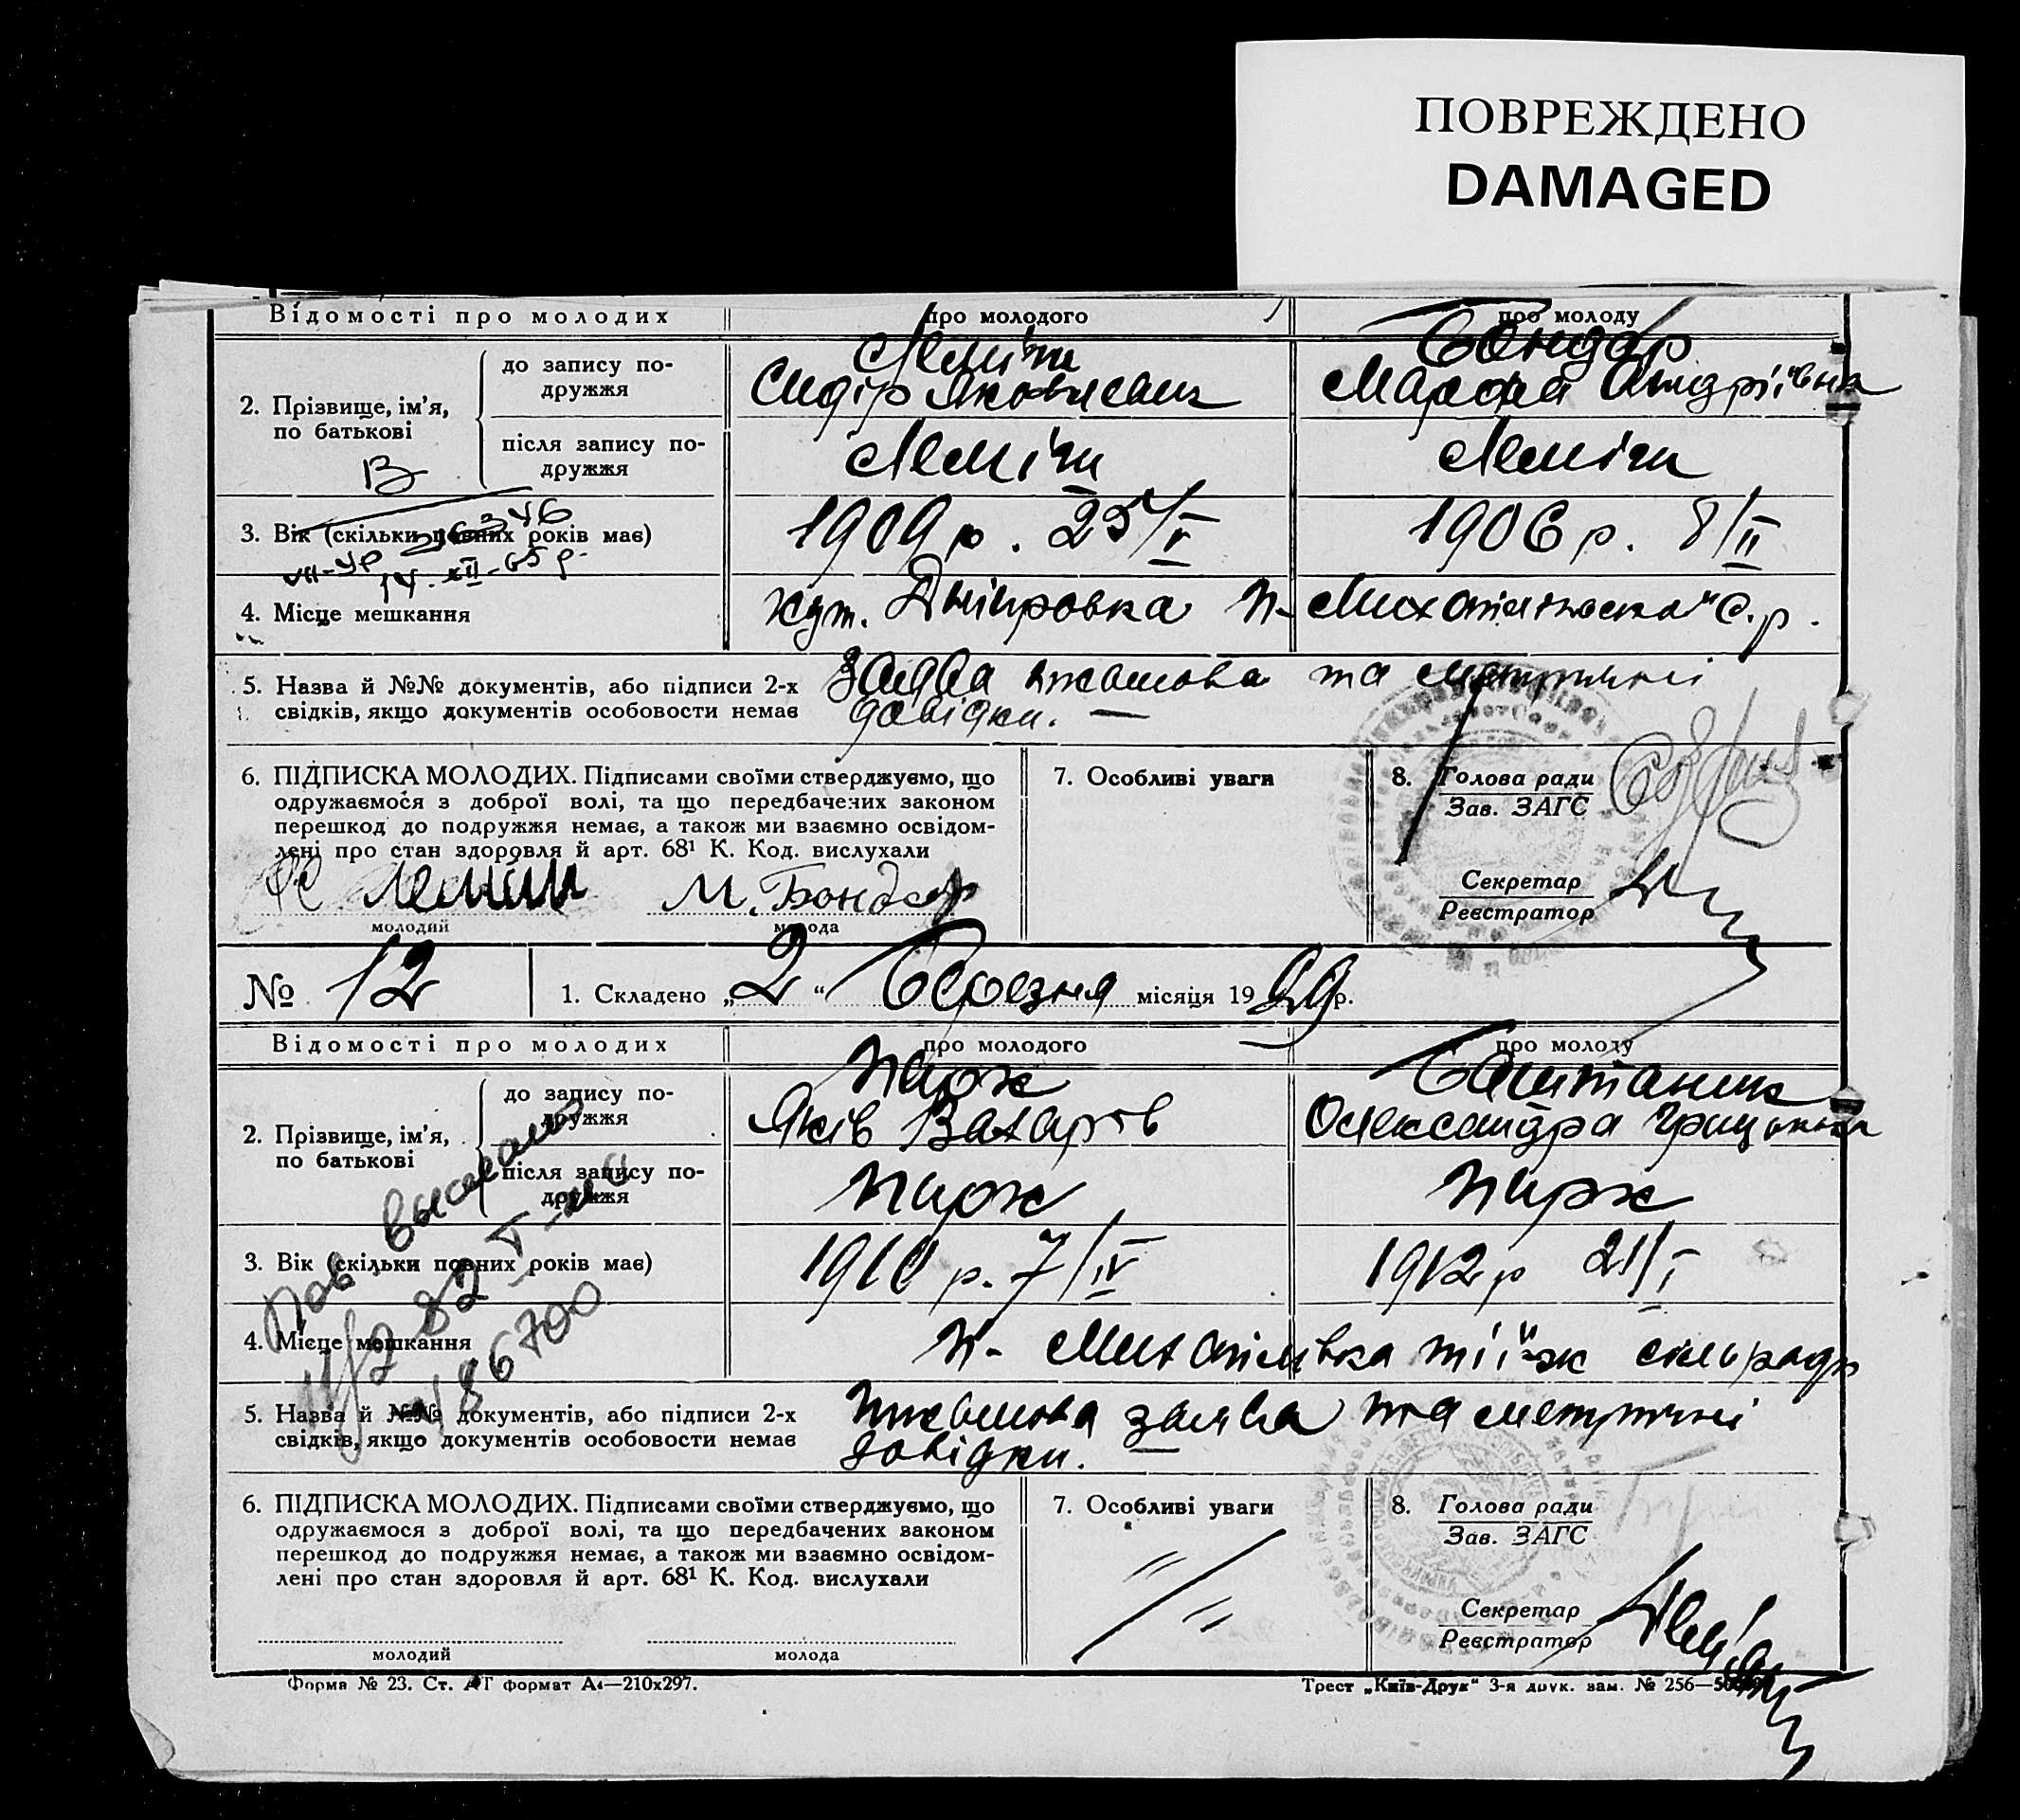 ПОВРЕЖДЕНО
DAMAGED
Відомості про молодих
про молодого
про молоду
2. Прізвище, ім'я,
по батькові
до запису по-
дружжя
Леміш
Сидір Якович
Бондар
Марфа Андріївна
після запису по-
дружжя
Леміш
Леміш
В
3. Вік (скільки повних років має)
1909 р. 25/V
1906 р. 8/II
4. Місце мешкання
хут. Дніпровка
Михайлівська с.р.
5. Назва й №№ документів, або підписи 2-х
свідків, якщо документів особовости немає
Заява письмова та метричні
довідки. —
6. ПІДПИСКА МОЛОДИХ. Підписами своїми стверджуємо, що
одружаємося з доброї волі, та що передбачених законом
перешкод до подружжя немає, а також ми взаємно освідом-
лені про стан здоровля й арт. 68¹ К. Код. вислухали
Леміш
М. Бондар
молодий
молода
7. Особливі уваги
8. Голова ради
Зав. ЗАГС
Секретар
Реєстратор
№ 12
1. Складено „2“ Березня місяця 1929 р.
Відомості про молодих
про молодого
про молоду
2. Прізвище, ім'я,
по батькові
до запису по-
дружжя
Яків Захарів
Баштаник
Олександра
після запису по-
дружжя
3. Вік (скільки повних років має)
7/IV
1912 р 21/I
4. Місце мешкання
Михайлівка тії-ж сільради
5. Назва й №№ документів, або підписи 2-х
свідків, якщо документів особовости немає
Письмова заява та метричні
довідки. —
Пов. выслано
186700
6. ПІДПИСКА МОЛОДИХ. Підписами своїми стверджуємо, що
одружаємося з доброї волі, та що передбачених законом
перешкод до подружжя немає, а також ми взаємно освідом-
лені про стан здоровля й арт. 68¹ К. Код. вислухали
молодий
молода
7. Особливі уваги
8. Голова ради
Зав. ЗАГС
Секретар
Реєстратор
Форма № 23. Ст. АГ формат А4—210x297.
Трест „Київ-Друк“ 3-я друк. зам. № 256—